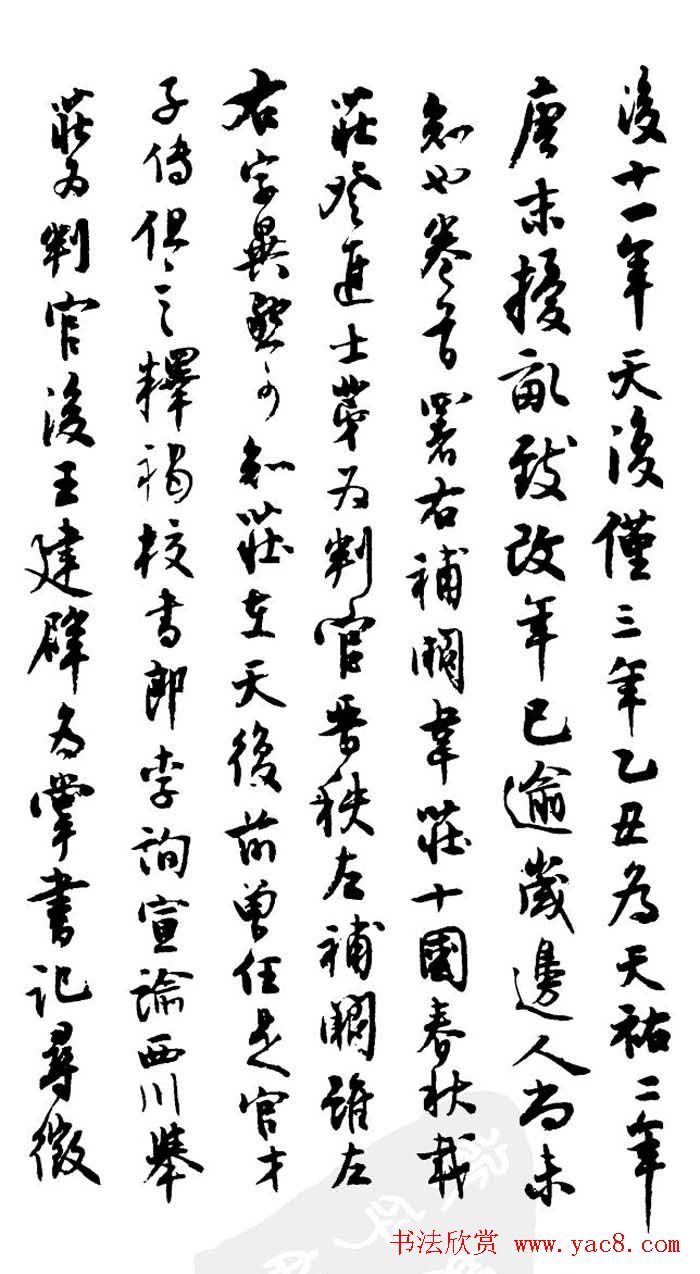 後十一年天復僅三年乙丑為天祐二年
唐末擾亂致改年已逾歲邊人尚未
知也卷首署右補闕韋莊十國春秋載
莊登進士第為判官晉秩左補闕雖左
右字異然可知莊在天復前曾任是官才
子傳但云釋褐校書郎李詢宣諭西川舉
莊為判官後王建辟為掌書記尋徵
书法欣赏 www.yac8.com